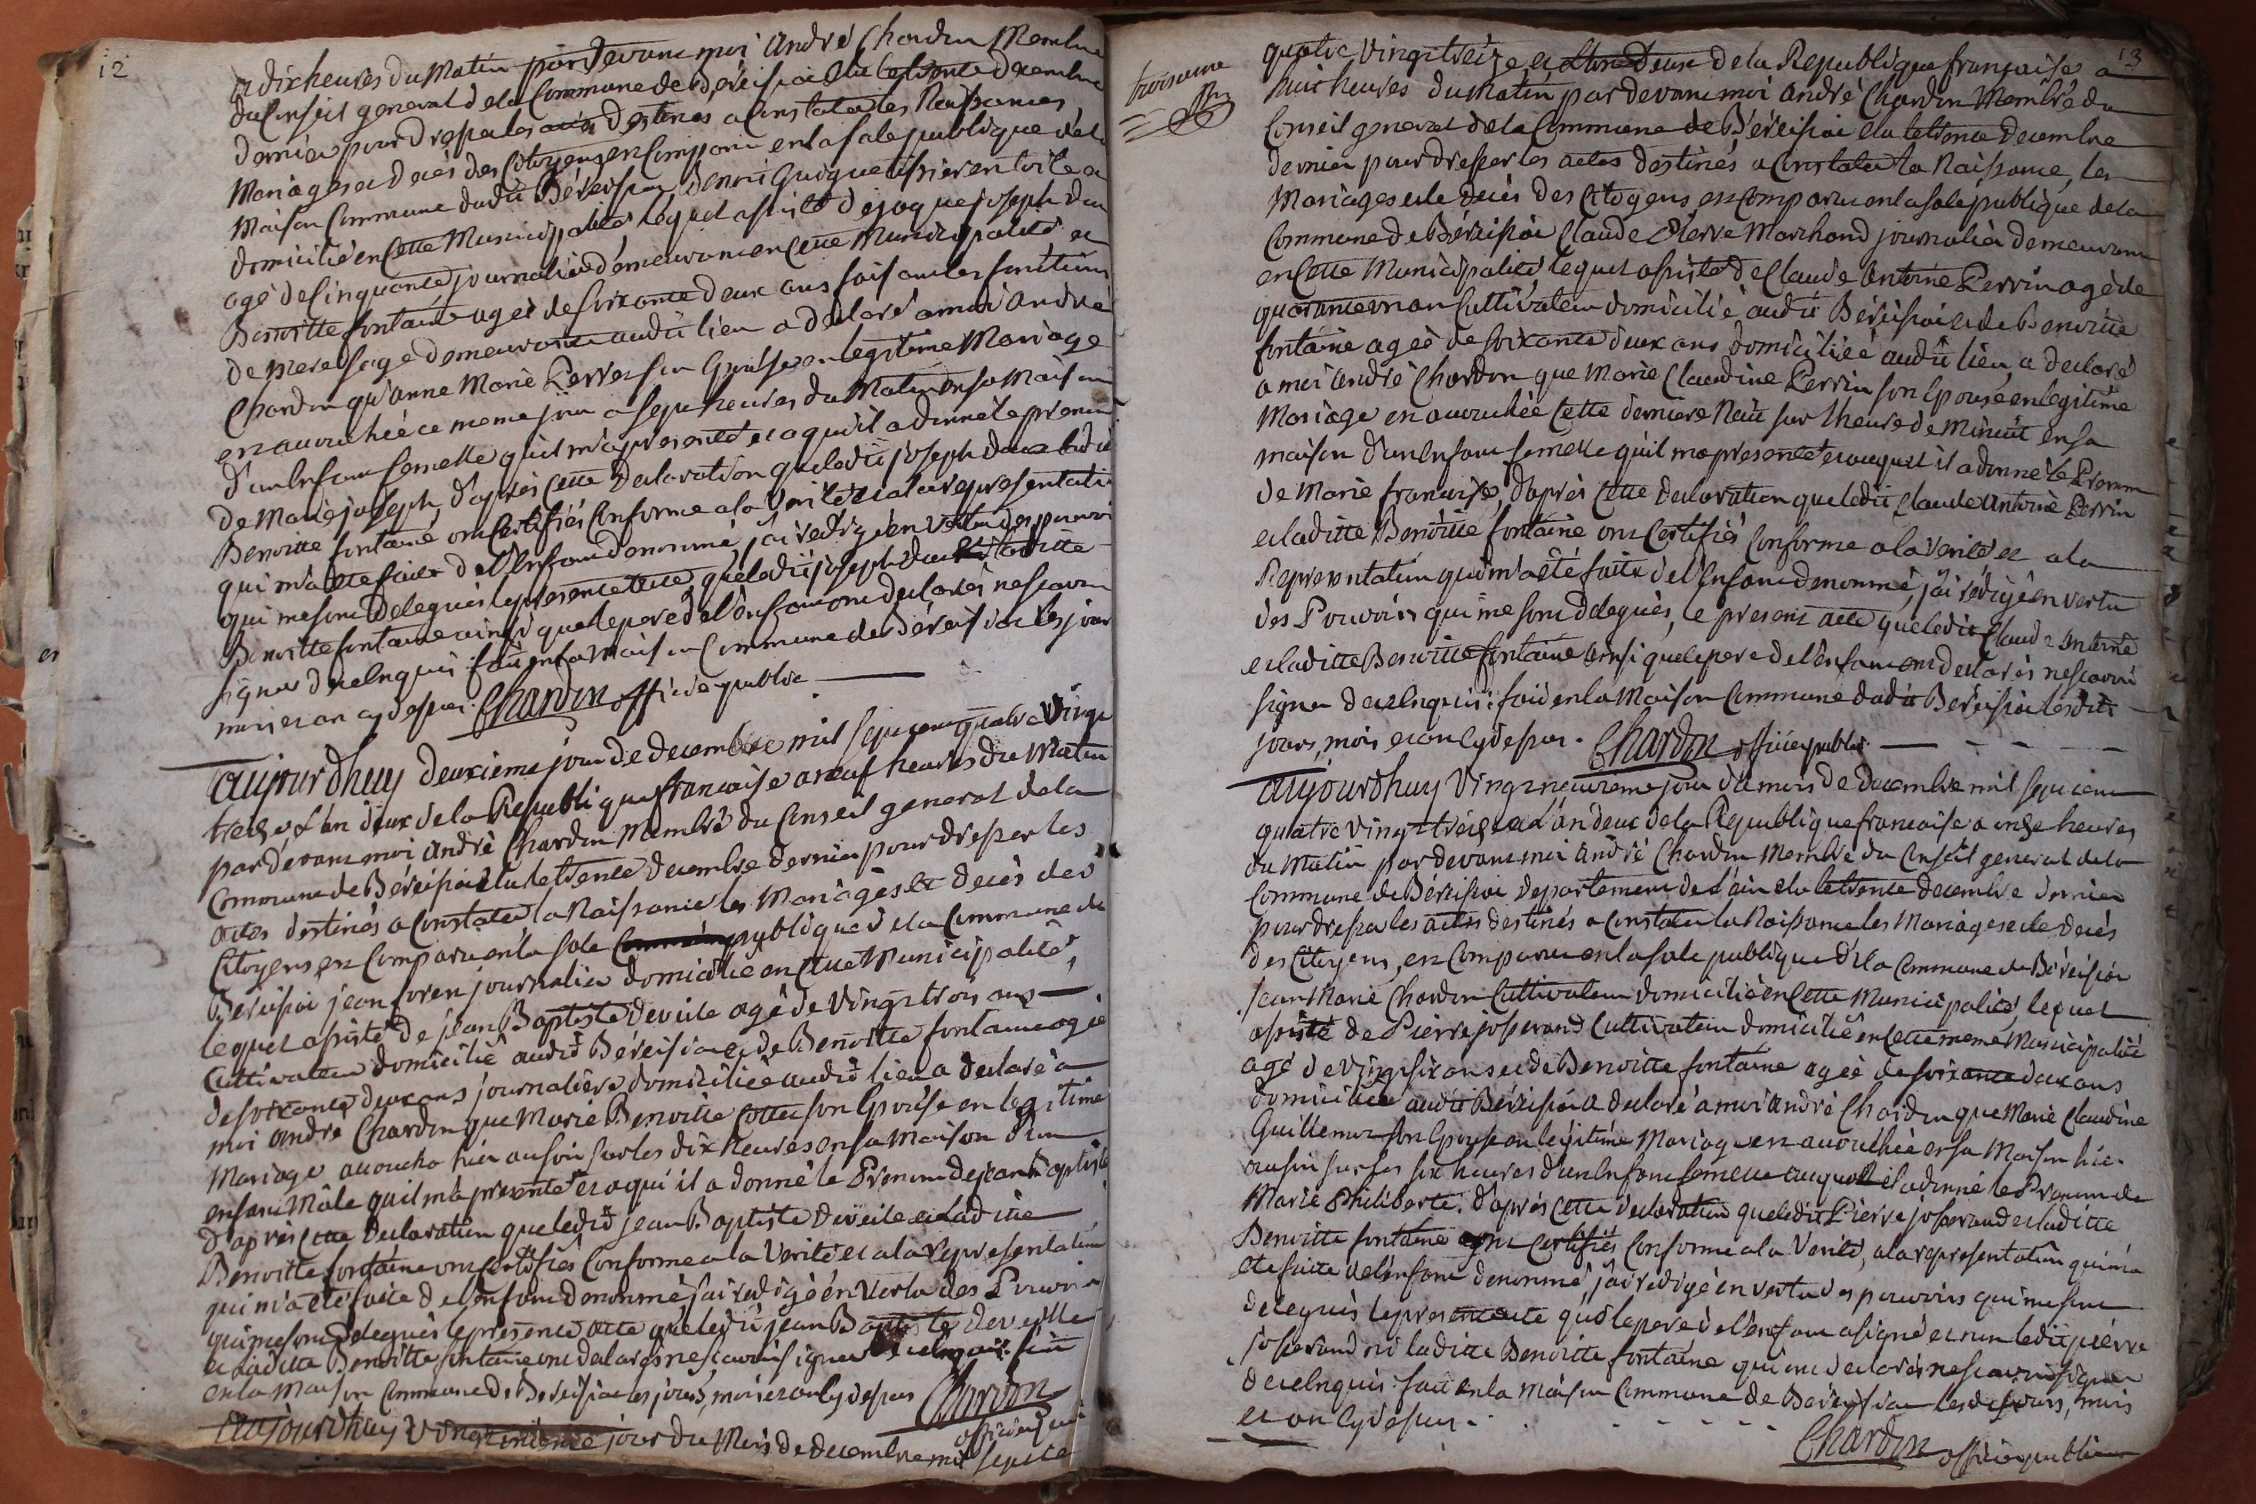 12
a dix heures du Matin par devant moi andré Chardin Membre
du Conseil general de la Commune de Béréisiat elu le trente decembre
dernier pour dresser les actes destinés a Constater les Naissances
Mariages et decès des Citoyens est Comparu en la sale publique de la
Maison Commune dudit Béréisiat, tissier en toile
domicilié en Cette Municipalité lequel assisté de jaque joseph
agé de Cinquante journalier demeurant en Cette Municipalité et
Benoitte fontaine ageé de soixante deux ans faisant les fonctions
de mere sage demeurante audit lieu a déclaré a moi André
Chardin qu'anne Marie son Epouse en legitime Mariage
est accouchée ce meme jour a sept heures du Matin en sa Maison
d'un Enfant femelle qu'il m'a presenté et a qui il a donné le prenom
de Marie joseph, d'aprés Cette declaration que ledit joseph
Benoitte fontaine ont Certifiés Conforme a la Verité et a la representation
qui m'a été faite de l'Enfant denommé, j'ai redigé en vertu des pouvoirs
qui me sont delegués le present acte que ledit joseph laditte
Benoitte fontaine ainsi que le pere de l'enfant ont declarés ne scavoir
signer de ce enquis : fait en la Maison Commune de Béréisiat les jour
mois et an cy dessus. Chardin officier public
aujourdhuy deuxieme jour de decembre mil sept cent quatre Vingt
treize l'an deux de la Republique francaise a neuf heures du Matin
par devant moi andré Chardin Membre du Conseil general de la
Commune de Béréisiat elu le trente decembre dernier pour dresser les
actes destinés a Constater la Naissance les Mariages et decès des
Citoyens est Comparu en la sale publique de la Commune de
Béréisiat jean journalier domicilié en Cette Municipalité,
lequel assisté de jean Baptiste agé de Vingt trois ans
Cultivateur domicilié audit Béréisiat et de Benoitte fontaine agée
de soixante deux ans journaliere domiciliée audit lieu a declaré a
moi andré Chardin que Marie Benoitte son Epouse en legitime
Mariage accoucha hier au soir sur les dix heures en sa Maison d'un
enfant Mâle qu'il m'a presenté et a qui il a donné le Prenom de jean Baptiste
d'aprés Cette declaration que ledit jean Baptiste et laditte
Benoitte fontaine ont Certifiés Conforme a la Verité et a la representation
qui m'a été faite de l'enfant denommé j'ai redigé en Vertu des Pouvoirs
qui me sont delegués le present acte que ledit jean Baptiste
et laditte Benoitte fontaine ont declarés ne scavoir signer fait
en la Maison Commune de Béréisiat les jours, mois et an cy dessus Chardin
officier
aujourdhuy jour du Mois de decembre mil sept
13
troisieme
quatre Vingt treize et l'an deux de la Republique française a
huit heures du Matin par devant moi andré Chardin Membre du
Conseil general de la Commune de Béréisiat elu le trente decembre
dernier pour dresser les actes destinés a Constater la Naissance, les
Mariages et le decès des Citoyens est Comparu en la sale publique de la
Commune de Béréisiat Claude Pierre Marchand journalier demeurant
en Cette Municipalité lequel assisté de Claude antoine Perrin agé de
quarante un an Cultivateur domicilié audit Béréisiat et de Benoitte
fontaine ageé de soixante deux ans domiciliée audit lieu, a declaré
a moi andré Chardon que Marie Claudine Perrin son Epouse en legitime
Mariage est accouchée Cette derniere Nuit sur l'heure de Minuit en sa
maison d'un Enfant femelle qu'il m'a presenté et auquel il a donné le Prenom
de Marie francoise, d'aprés Cette declaration que ledit Claude antoine Perrin
et laditte Benoitte fontaine ont Certifiés Conforme a la Verité et a la
Representation qui m'a été faite de l'Enfant denommé, j'ai redigé en vertu
des Pouvoirs qui me sont delegués, le present acte que ledit Claude antoine
et laditte Benoitte fontaine ainsi que le pere de l'enfant ont declarés ne scavoir
signer de ce enquis : fait en la Maison Commune dudit Béréisiat lesdits
jours, mois et an Cy dessus. Chardin officier public
aujourdhuy Vingt neuvieme jour du mois de decembre mil sept cent
quatre Vingt treize et l'an deux de la Republique francaise a onze heures
du Matin par devant moi andré Chardin Membre du Conseil general de la
Commune de Béréisiat departement de l'ain elu le trente decembre dernier
pour dresser les actes destinés a Constater la Naissance les Mariages et le decès
des Citoyens, est Comparu en la sale publique de la Commune de Béréisiat
Jean Marie Chardon Cultivateur domicilié en Cette Municipalité, lequel
assisté de Pierre josserand Cultivateur domicilié en Cette meme Municipalité
agé de Vingt six ans et de Benoitte fontaine ageé de soixante deux ans
domiciliée audit Béréisiat a declaré a moi andré Chardin que Marie Claudine
Guillemot son Epouse en legitime Mariage est accouchée en sa Maison hier
au soir sur les six heures d'un Enfant femelle auquel il a donné le Prenom de
Marie Philiberte. d'aprés Cette declaration que ledit Pierre josserand et laditte
Benoitte fontaine ont Certifiés Conforme a la Verité, a la representation qui m'a
été faitte de l'enfant denommé, j'ai redigé en vertu des pouvoirs qui me sont
delegués le present acte que le pere de l'enfant a signé et non ledit pierre
josserand ni laditte Benoitte fontaine qui ont declarés ne scavoir signer
de ce enquis fait en la Maison Commune de Béréisiat les dits jours, mois
et an Cy dessus.
Chardin officier public